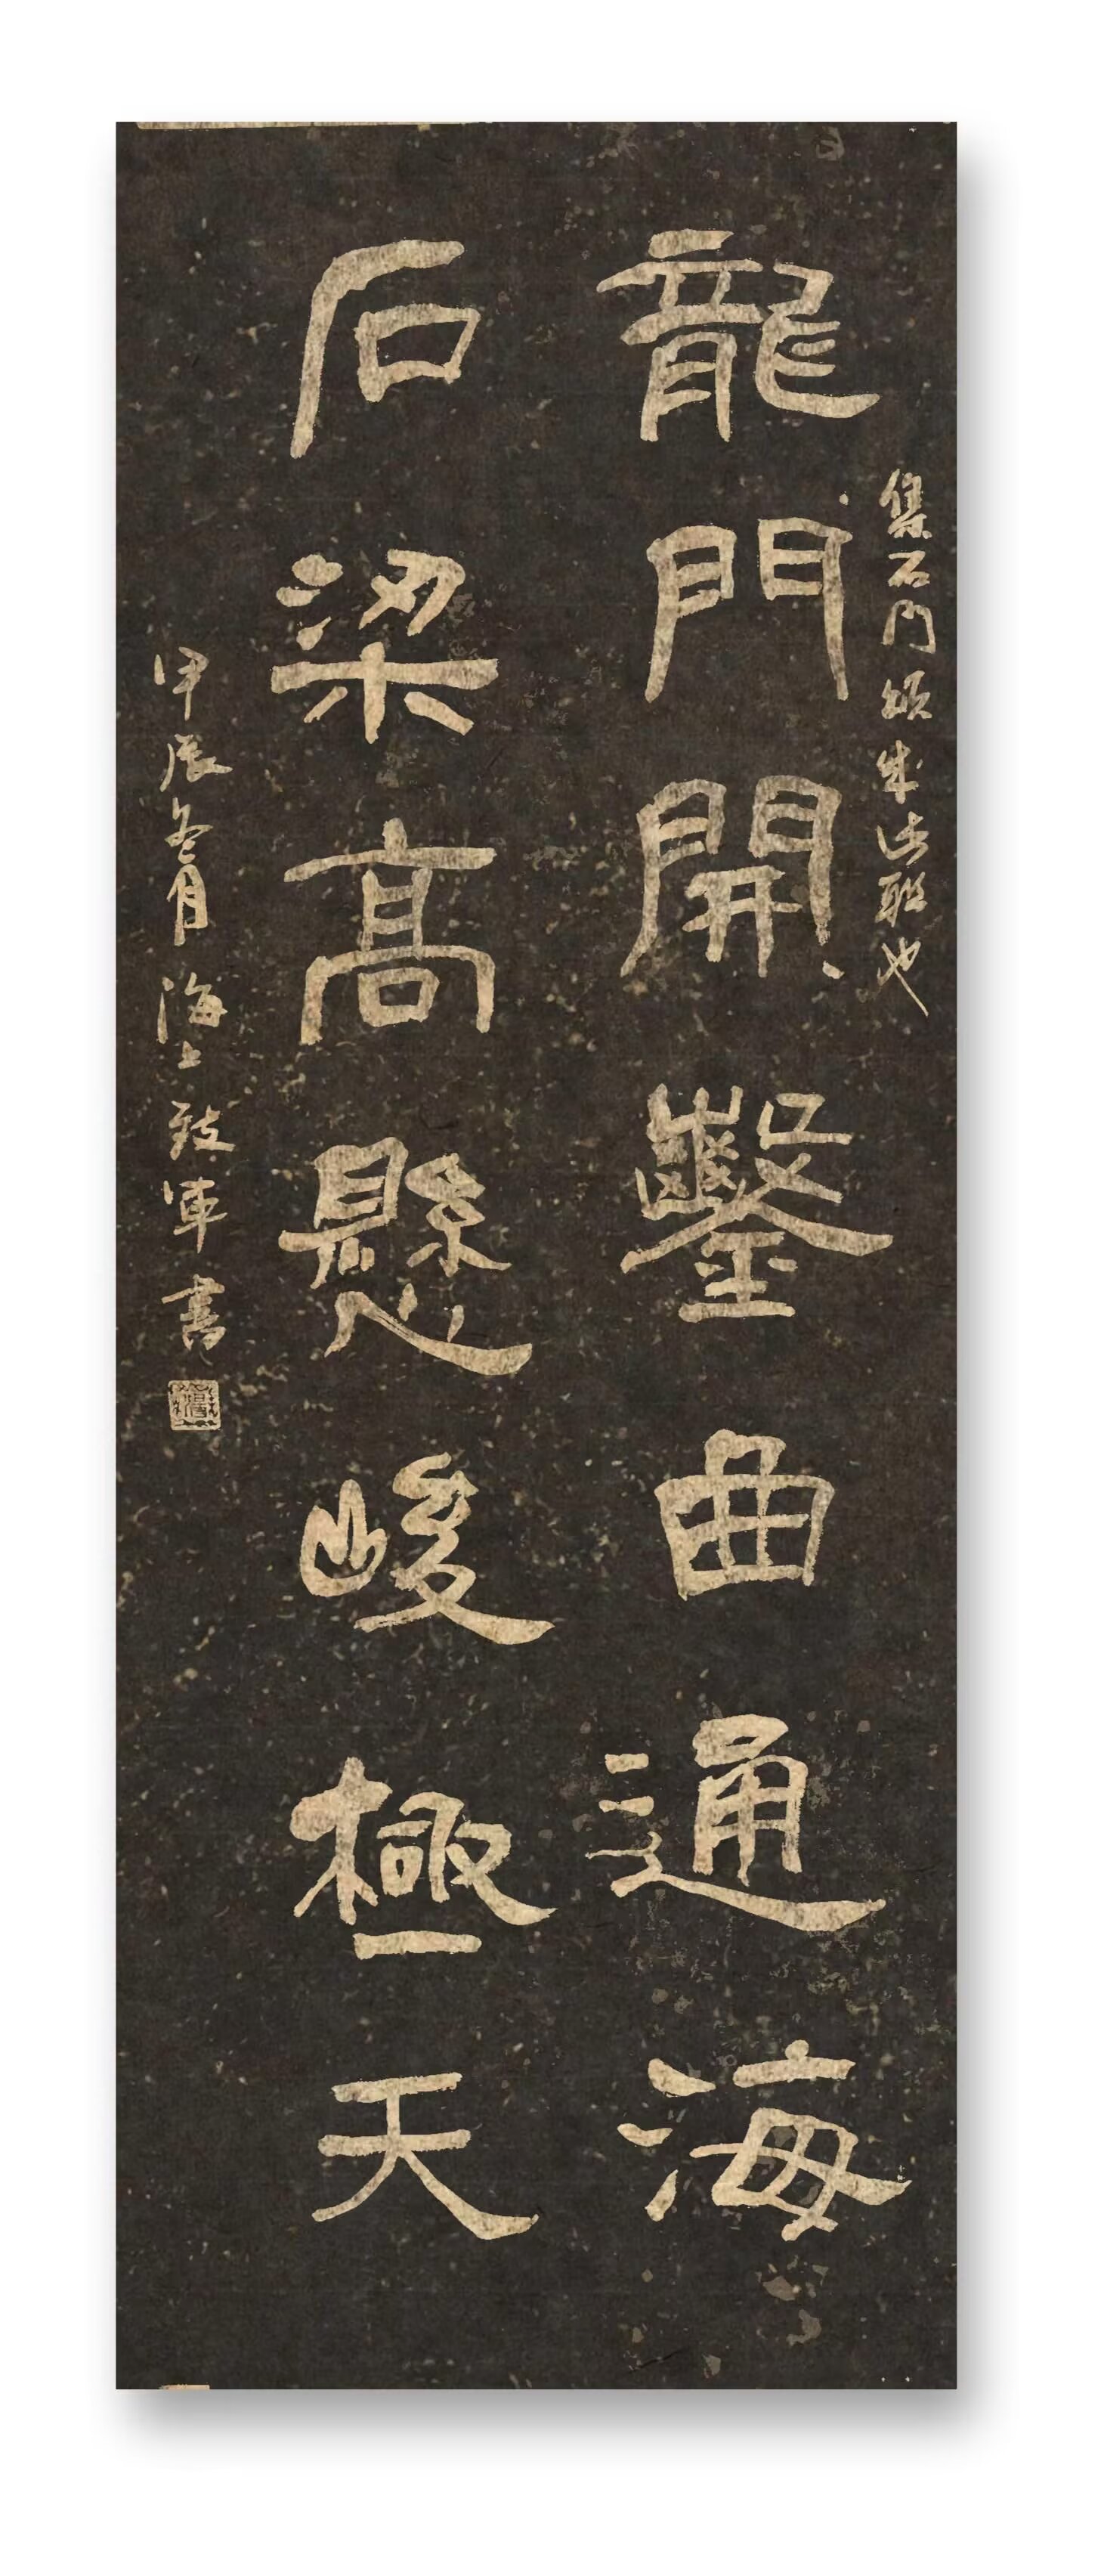 集石門頌成此聯也
龍門開鑿曲通海
石梁高懸峻極天
甲辰冬月海上致軍書